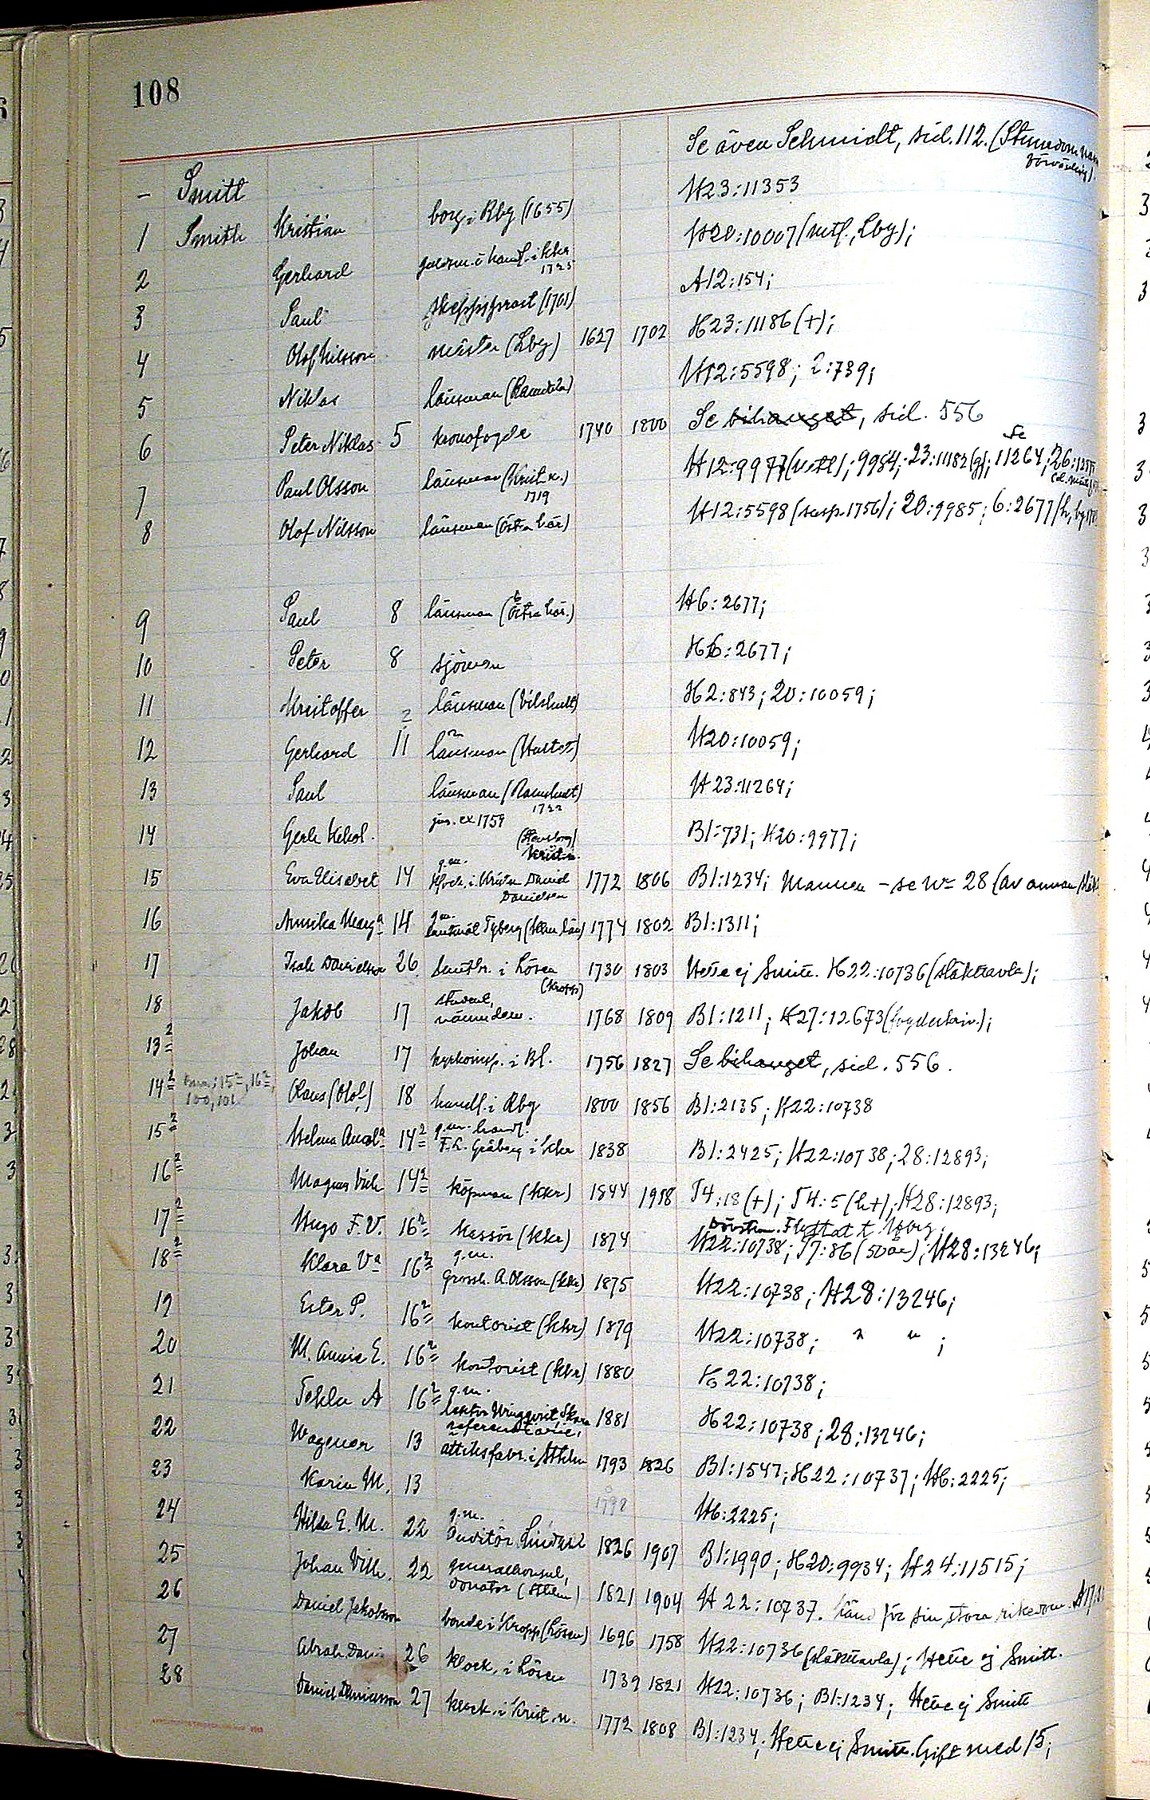 108
Se även Schmidt, sid. 112. (Stensdom.
förväxling).
– Smitt H23:11353
1 Smith Kristian borg. i Rbg (1655) H20:10007 (mtl., Lby);
2 Gerhard i Kkr 1725 A12:154;
3 Paul skeppsprost (1701) H23:11186 (+);
4 Olof Nilsson mäster (Lby) 1627 1702 H12:5598; 2:739;
5 Niklas länsman (Ramdala) Se bihanget, sid. 556
6 Peter Niklas 5 kronofogde 1740 1800 H12:9977 (mtl); 9984; 23:11182 (g); 11264;
7 Paul Olsson länsman (Krist.n.) 1719 H12:5598 (susp. 1756); 20:9985; 6:2677
8 Olof Nilsson länsman (Östra här)
9 Paul 8 länsman (Östra här.) H6:2677;
10 Peter 8 sjöman H6:2677;
11 Kristoffer länsman (Vilshult) H2:843; 20:10059;
12 Gerhard 11 länsman H20:10059;
13 Paul länsman (Ramshult) 1722 H23:11264;
14 Gerh. Kristof. jus. ex 1759 B1:731; H20:9977;
15 Eva Elisabet 14 g.m. klock. i Krist.n. David Danielson 1772 1806 B1:1234; Mannen – se Nr 28 (av annan släkt
16 Annika Marg.a 14 g.m. lantmät. Tyberg 1774 1802 B1:1311;
17 Isak Danielson 26 lantbr. i Lösen (Kropp) 1730 1803 Hette ej Smitt. H22:10736 (släkttavla);
18 Jakob 17 student, nämndem. 1768 1809 B1:1211; H27:12673 (fogdeskriv.);
13² Johan 17 kyrkoinsp. i Bl. 1756 1827 Se bihanget, sid. 556.
14² 15², 16², 100, 101 Claus (Olof) 18 handl. i Rbg 1800 1856 B1:2135; H22:10738
15² Helena 14² g.m. handl. F. L. Gråberg i Kkr 1838 B1:2425; H22:10738; 28:12893;
16² Magnus Vilh 14² köpman (Kkr) 1844 1918 T4:18 (+); T4:5 (h+); H28:12893;
Flyttat t.
17² Hugo F. V. 16² kassör (Kkr) 1874 H22:10738; T7:86 (50 år); H28:13246;
18² Klara V.a 16² g.m. grossh. A. Olsson (Kkr) 1875 H22:10738; H28:13246;
19 Ester P. 16² kontorist (Kkr) 1879 H22:10738; " " ;
20 M. Annie E. 16² kontorist (Kkr) 1880 H22:10738;
21 Tekla A 16² g.m. lektor Ringqvist, Skara 1881 H22:10738; 28:13246;
22 Wagener 13 referendarie, ättiksfabr. i Sthlm 1793 1826 B1:1547; H22:10737; H6:2225;
23 Karin M. 13 1798 H6:2225;
24 Hilda E. M. 22 g.m. auditör 1826 1907 B1:1990; H20:9934; H24:11515;
25 Johan Vilh. 22 generalkonsul, donator (Sthlm) 1821 1904 H22:10737. känd för sin stora rikedom.
26 Daniel Jakobsson bonde i Kropp (Lösen) 1696 1758 H22:10736 (släkttavla); Hette ej Smitt.
27 Abrah. Dan. 26 klock. i Lösen 1739 1821 H22:10736; B1:1234; Hette ej Smitt
28 Daniel Danielsson 27 klock. i Krist.n. 1772 1808 B1:1234; Hette ej Smitt. Gift med 15;